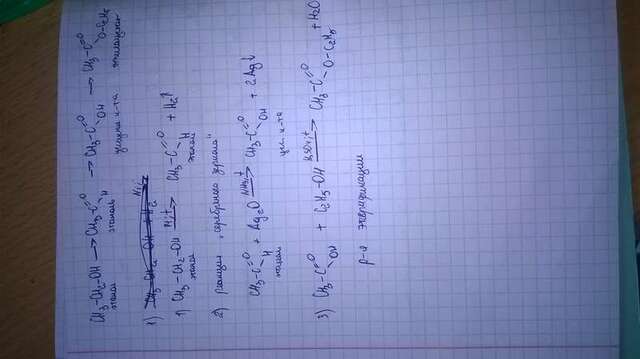 CH₃-CH₂-OH → CH₃-C=O H → CH₃-C=O OH → CH₃-C=O O-C₂H₅
этанол этаналь уксусная к-та этилацетат
1) CH₃-CH₂-OH Ni,t → CH₃-C=O H + H₂↑
этанол этаналь
2) реакция "серебряного зеркала"
CH₃-C=O H + Ag₂O NH₃,t → CH₃-C=O OH + 2Ag↓
этаналь укс. к-та
3) CH₃-C=O OH + C₂H₅-OH H₂SO₄,t → CH₃-C=O O-C₂H₅ + H₂O
р-я этерификации